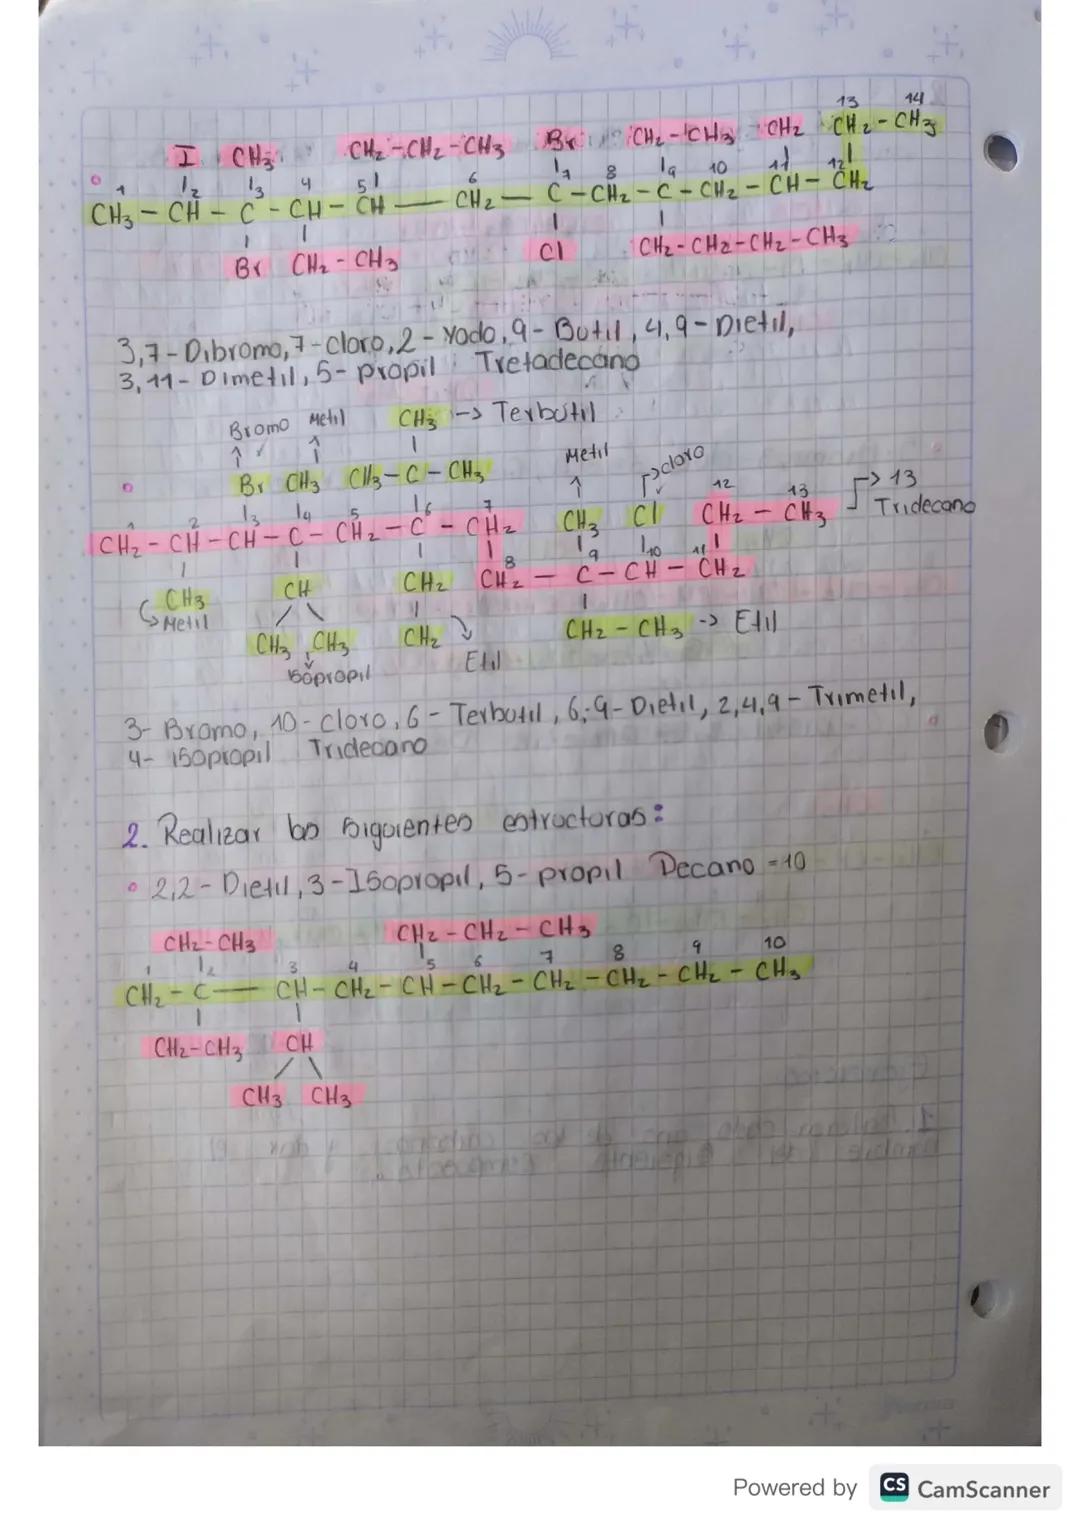 13 14
I CH3 CH2-CH2-CH3 Br CH2-CH3 CH2 CH2-CH3
1 2 3 4 5 6 7 8 9 10 11 12
CH3-CH-C-CH-CH-CH2-C-CH2-C-CH2-CH-CH2
Br CH2-CH3 Cl CH2-CH2-CH2-CH3
3,7-Dibromo,7-cloro,2-Yodo,9-Butil,4,9-Dietil,
3,11-Dimetil,5-propil Tretadecano
Bromo Metil CH3 -> Terbutil
Br CH3 CH3-C-CH3 Metil cloro
1 2 3 4 5 6 7 CH3 Cl 12 13
CH2-CH-CH-C-CH2-C-CH2 CH2-CH3 -> 13 Tridecano
8 9 10 11
CH3 CH CH2 CH2-C-CH-CH2
Metil CH3 CH3 CH2 CH2-CH3 -> Etil
isopropil Etil
3-Bromo, 10-cloro, 6-Terbutil, 6,9-Dietil, 2,4,9-Trimetil,
4-isopropil Tridecano
2. Realizar las siguientes estructuras:
2,2-Dietil, 3-Isopropil, 5-propil Decano =10
CH2-CH3 CH2-CH2-CH3
1 2 3 4 5 6 7 8 9 10
CH2-C-CH-CH2-CH-CH2-CH2-CH2-CH2-CH3
CH2-CH3 CH
CH3 CH3
Powered by CS CamScanner